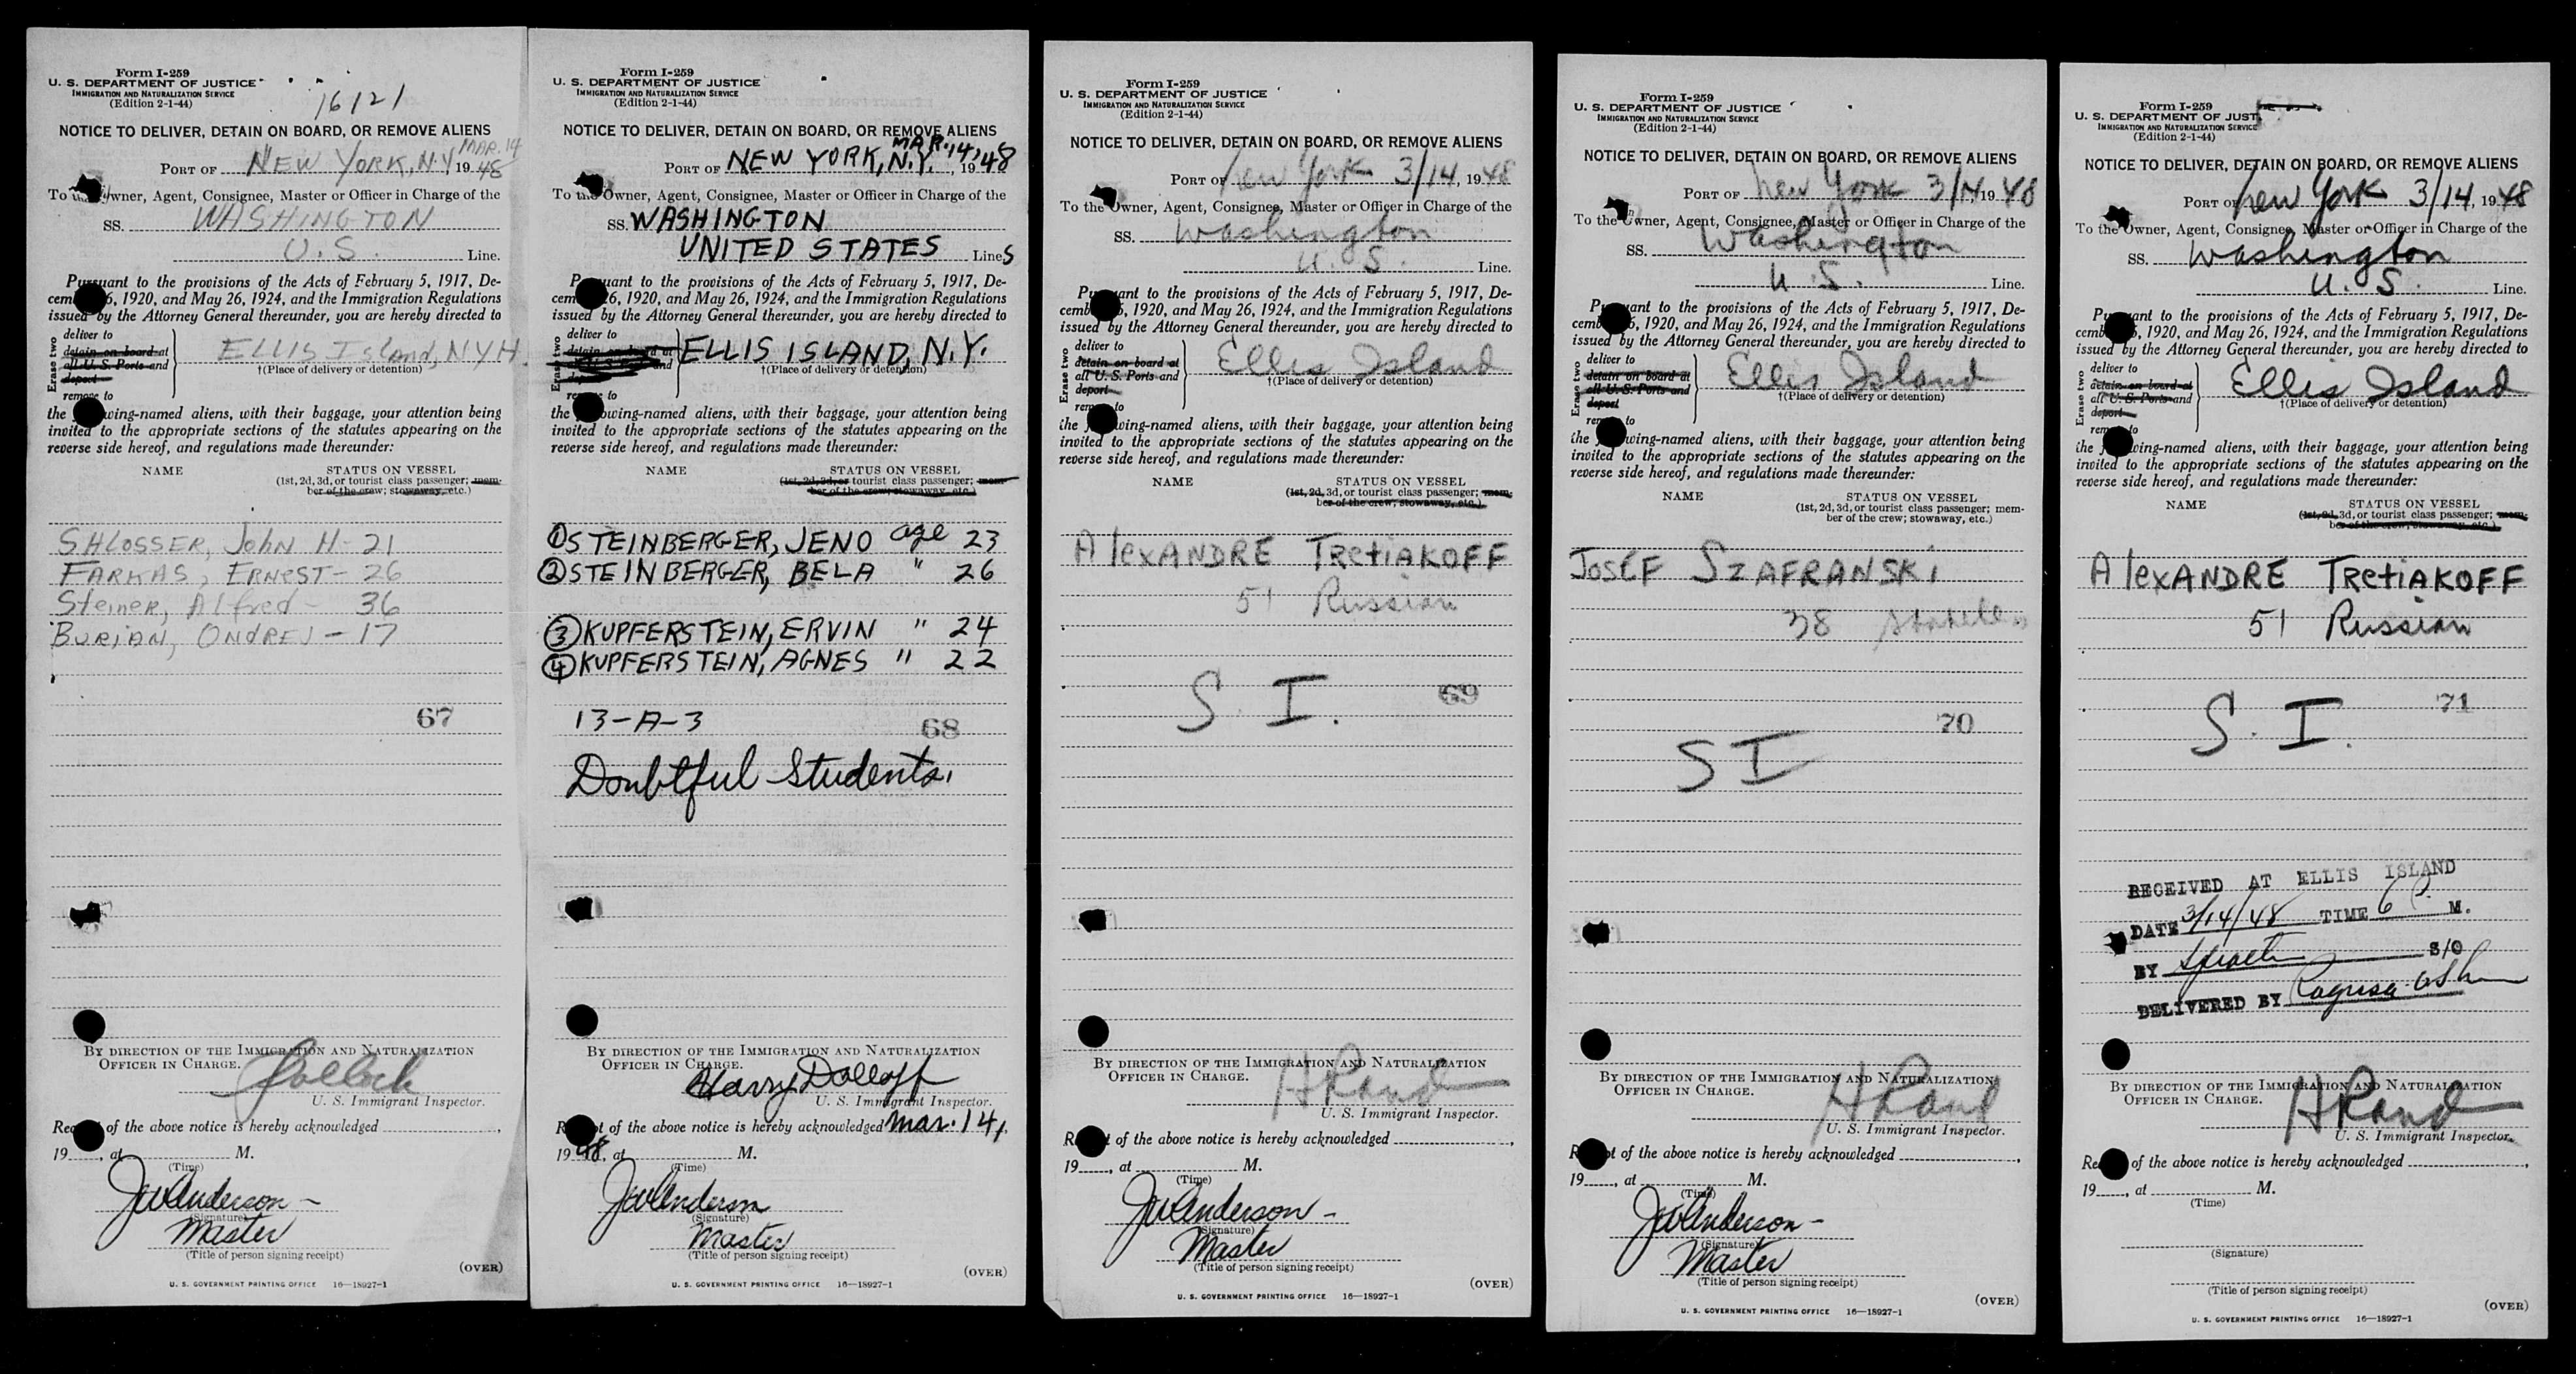 Form I-259
U. S. DEPARTMENT OF JUSTICE
IMMIGRATION AND NATURALIZATION SERVICE
(Edition 2-1-44)
16121
NOTICE TO DELIVER, DETAIN ON BOARD, OR REMOVE ALIENS
MAR. 14
PORT OF NEW YORK, N.Y., 1948
To the Owner, Agent, Consignee, Master or Officer in Charge of the
SS. WASHINGTON
U.S. Line.
Pursuant to the provisions of the Acts of February 5, 1917, De-
cember 26, 1920, and May 26, 1924, and the Immigration Regulations
issued by the Attorney General thereunder, you are hereby directed to
Erase two
deliver to
detain on board at
all U. S. Ports and
deport
remove to
ELLIS Island, NYH
†(Place of delivery or detention)
the following-named aliens, with their baggage, your attention being
invited to the appropriate sections of the statutes appearing on the
reverse side hereof, and regulations made thereunder:
NAME STATUS ON VESSEL
(1st, 2d, 3d, or tourist class passenger; mem-
ber of the crew; stowaway, etc.)
SHLOSSER, John H- 21
FARKAS, ERNEST- 26
Steiner, Alfred - 36
BURIAN, ONDREJ - 17
67
BY DIRECTION OF THE IMMIGRATION AND NATURALIZATION
OFFICER IN CHARGE.
Pollock
U. S. Immigrant Inspector.
Receipt of the above notice is hereby acknowledged
19, at M.
(Time)
JWAnderson -
(Signature)
Master
(Title of person signing receipt)
(OVER)
U. S. GOVERNMENT PRINTING OFFICE 16—18927-1
Form I-259
U. S. DEPARTMENT OF JUSTICE
IMMIGRATION AND NATURALIZATION SERVICE
(Edition 2-1-44)
NOTICE TO DELIVER, DETAIN ON BOARD, OR REMOVE ALIENS
MAR. 14,
PORT OF NEW YORK, N.Y., 1948
To the Owner, Agent, Consignee, Master or Officer in Charge of the
SS. WASHINGTON
UNITED STATES Lines
Pursuant to the provisions of the Acts of February 5, 1917, De-
cember 26, 1920, and May 26, 1924, and the Immigration Regulations
issued by the Attorney General thereunder, you are hereby directed to
Erase two
deliver to
detain on board at
and
remove to
ELLIS ISLAND, N.Y.
†(Place of delivery or detention)
the following-named aliens, with their baggage, your attention being
invited to the appropriate sections of the statutes appearing on the
reverse side hereof, and regulations made thereunder:
NAME STATUS ON VESSEL
(1st, 2d, 3d, or tourist class passenger; mem-
ber of the crew; stowaway, etc.)
① STEINBERGER, JENO age 23
② STEINBERGER, BELA " 26
③ KUPFERSTEIN, ERVIN " 24
④ KUPFERSTEIN, AGNES " 22
13-A-3
68
Doubtful Students.
BY DIRECTION OF THE IMMIGRATION AND NATURALIZATION
OFFICER IN CHARGE.
Harry Dolloff
U. S. Immigrant Inspector.
Receipt of the above notice is hereby acknowledged Mar. 14,
1948, at M.
(Time)
JWAnderson
(Signature)
Master
(Title of person signing receipt)
(OVER)
U. S. GOVERNMENT PRINTING OFFICE 16—18927-1
Form I-259
U. S. DEPARTMENT OF JUSTICE
IMMIGRATION AND NATURALIZATION SERVICE
(Edition 2-1-44)
NOTICE TO DELIVER, DETAIN ON BOARD, OR REMOVE ALIENS
PORT OF New York 3/14, 1948
To the Owner, Agent, Consignee, Master or Officer in Charge of the
SS. Washington
U. S. Line.
Pursuant to the provisions of the Acts of February 5, 1917, De-
cember 26, 1920, and May 26, 1924, and the Immigration Regulations
issued by the Attorney General thereunder, you are hereby directed to
Erase two
deliver to
detain on board at
all U. S. Ports and
deport
remove to
Ellis Island
†(Place of delivery or detention)
the following-named aliens, with their baggage, your attention being
invited to the appropriate sections of the statutes appearing on the
reverse side hereof, and regulations made thereunder:
NAME STATUS ON VESSEL
(1st, 2d, 3d, or tourist class passenger; mem-
ber of the crew; stowaway, etc.)
AlexANDRE TRetiAKOFF
51 Russian
S. I.
69
BY DIRECTION OF THE IMMIGRATION AND NATURALIZATION
OFFICER IN CHARGE.
H Rand
U. S. Immigrant Inspector.
Receipt of the above notice is hereby acknowledged
19, at M.
(Time)
JWAnderson -
(Signature)
Master
(Title of person signing receipt)
(OVER)
U. S. GOVERNMENT PRINTING OFFICE 16—18927-1
Form I-259
U. S. DEPARTMENT OF JUSTICE
IMMIGRATION AND NATURALIZATION SERVICE
(Edition 2-1-44)
NOTICE TO DELIVER, DETAIN ON BOARD, OR REMOVE ALIENS
PORT OF New York 3/14, 1948
To the Owner, Agent, Consignee, Master or Officer in Charge of the
SS. Washington
U. S. Line.
Pursuant to the provisions of the Acts of February 5, 1917, De-
cember 26, 1920, and May 26, 1924, and the Immigration Regulations
issued by the Attorney General thereunder, you are hereby directed to
Erase two
deliver to
detain on board at
all U. S. Ports and
deport
remove to
Ellis Island
†(Place of delivery or detention)
the following-named aliens, with their baggage, your attention being
invited to the appropriate sections of the statutes appearing on the
reverse side hereof, and regulations made thereunder:
NAME STATUS ON VESSEL
(1st, 2d, 3d, or tourist class passenger; mem-
ber of the crew; stowaway, etc.)
JOSEF SZAFRANSKI
38 Stateless
70
S I
BY DIRECTION OF THE IMMIGRATION AND NATURALIZATION
OFFICER IN CHARGE.
H Rand
U. S. Immigrant Inspector.
Receipt of the above notice is hereby acknowledged
19, at M.
(Time)
JWAnderson -
(Signature)
Master
(Title of person signing receipt)
(OVER)
U. S. GOVERNMENT PRINTING OFFICE 16—18927-1
Form I-259
U. S. DEPARTMENT OF JUST
IMMIGRATION AND NATURALIZATION SERVICE
(Edition 2-1-44)
NOTICE TO DELIVER, DETAIN ON BOARD, OR REMOVE ALIENS
PORT OF New York 3/14, 1948
To the Owner, Agent, Consignee, Master or Officer in Charge of the
SS. Washington
U. S. Line.
Pursuant to the provisions of the Acts of February 5, 1917, De-
cember 26, 1920, and May 26, 1924, and the Immigration Regulations
issued by the Attorney General thereunder, you are hereby directed to
Erase two
deliver to
detain on board at
all U. S. Ports and
deport
remove to
Ellis Island
†(Place of delivery or detention)
the following-named aliens, with their baggage, your attention being
invited to the appropriate sections of the statutes appearing on the
reverse side hereof, and regulations made thereunder:
NAME STATUS ON VESSEL
(1st, 2d, 3d, or tourist class passenger; mem-
ber of the crew; stowaway, etc.)
AlexANDRE TRetiAKOFF
51 Russian
S. I.
71
RECEIVED AT ELLIS ISLAND
DATE 3/14/48 TIME 6 P. M.
BY S/O
DELIVERED BY Ragusa
BY DIRECTION OF THE IMMIGRATION AND NATURALIZATION
OFFICER IN CHARGE.
H Rand
U. S. Immigrant Inspector.
Receipt of the above notice is hereby acknowledged
19, at M.
(Time)
(Signature)
(Title of person signing receipt)
(OVER)
U. S. GOVERNMENT PRINTING OFFICE 16—18927-1